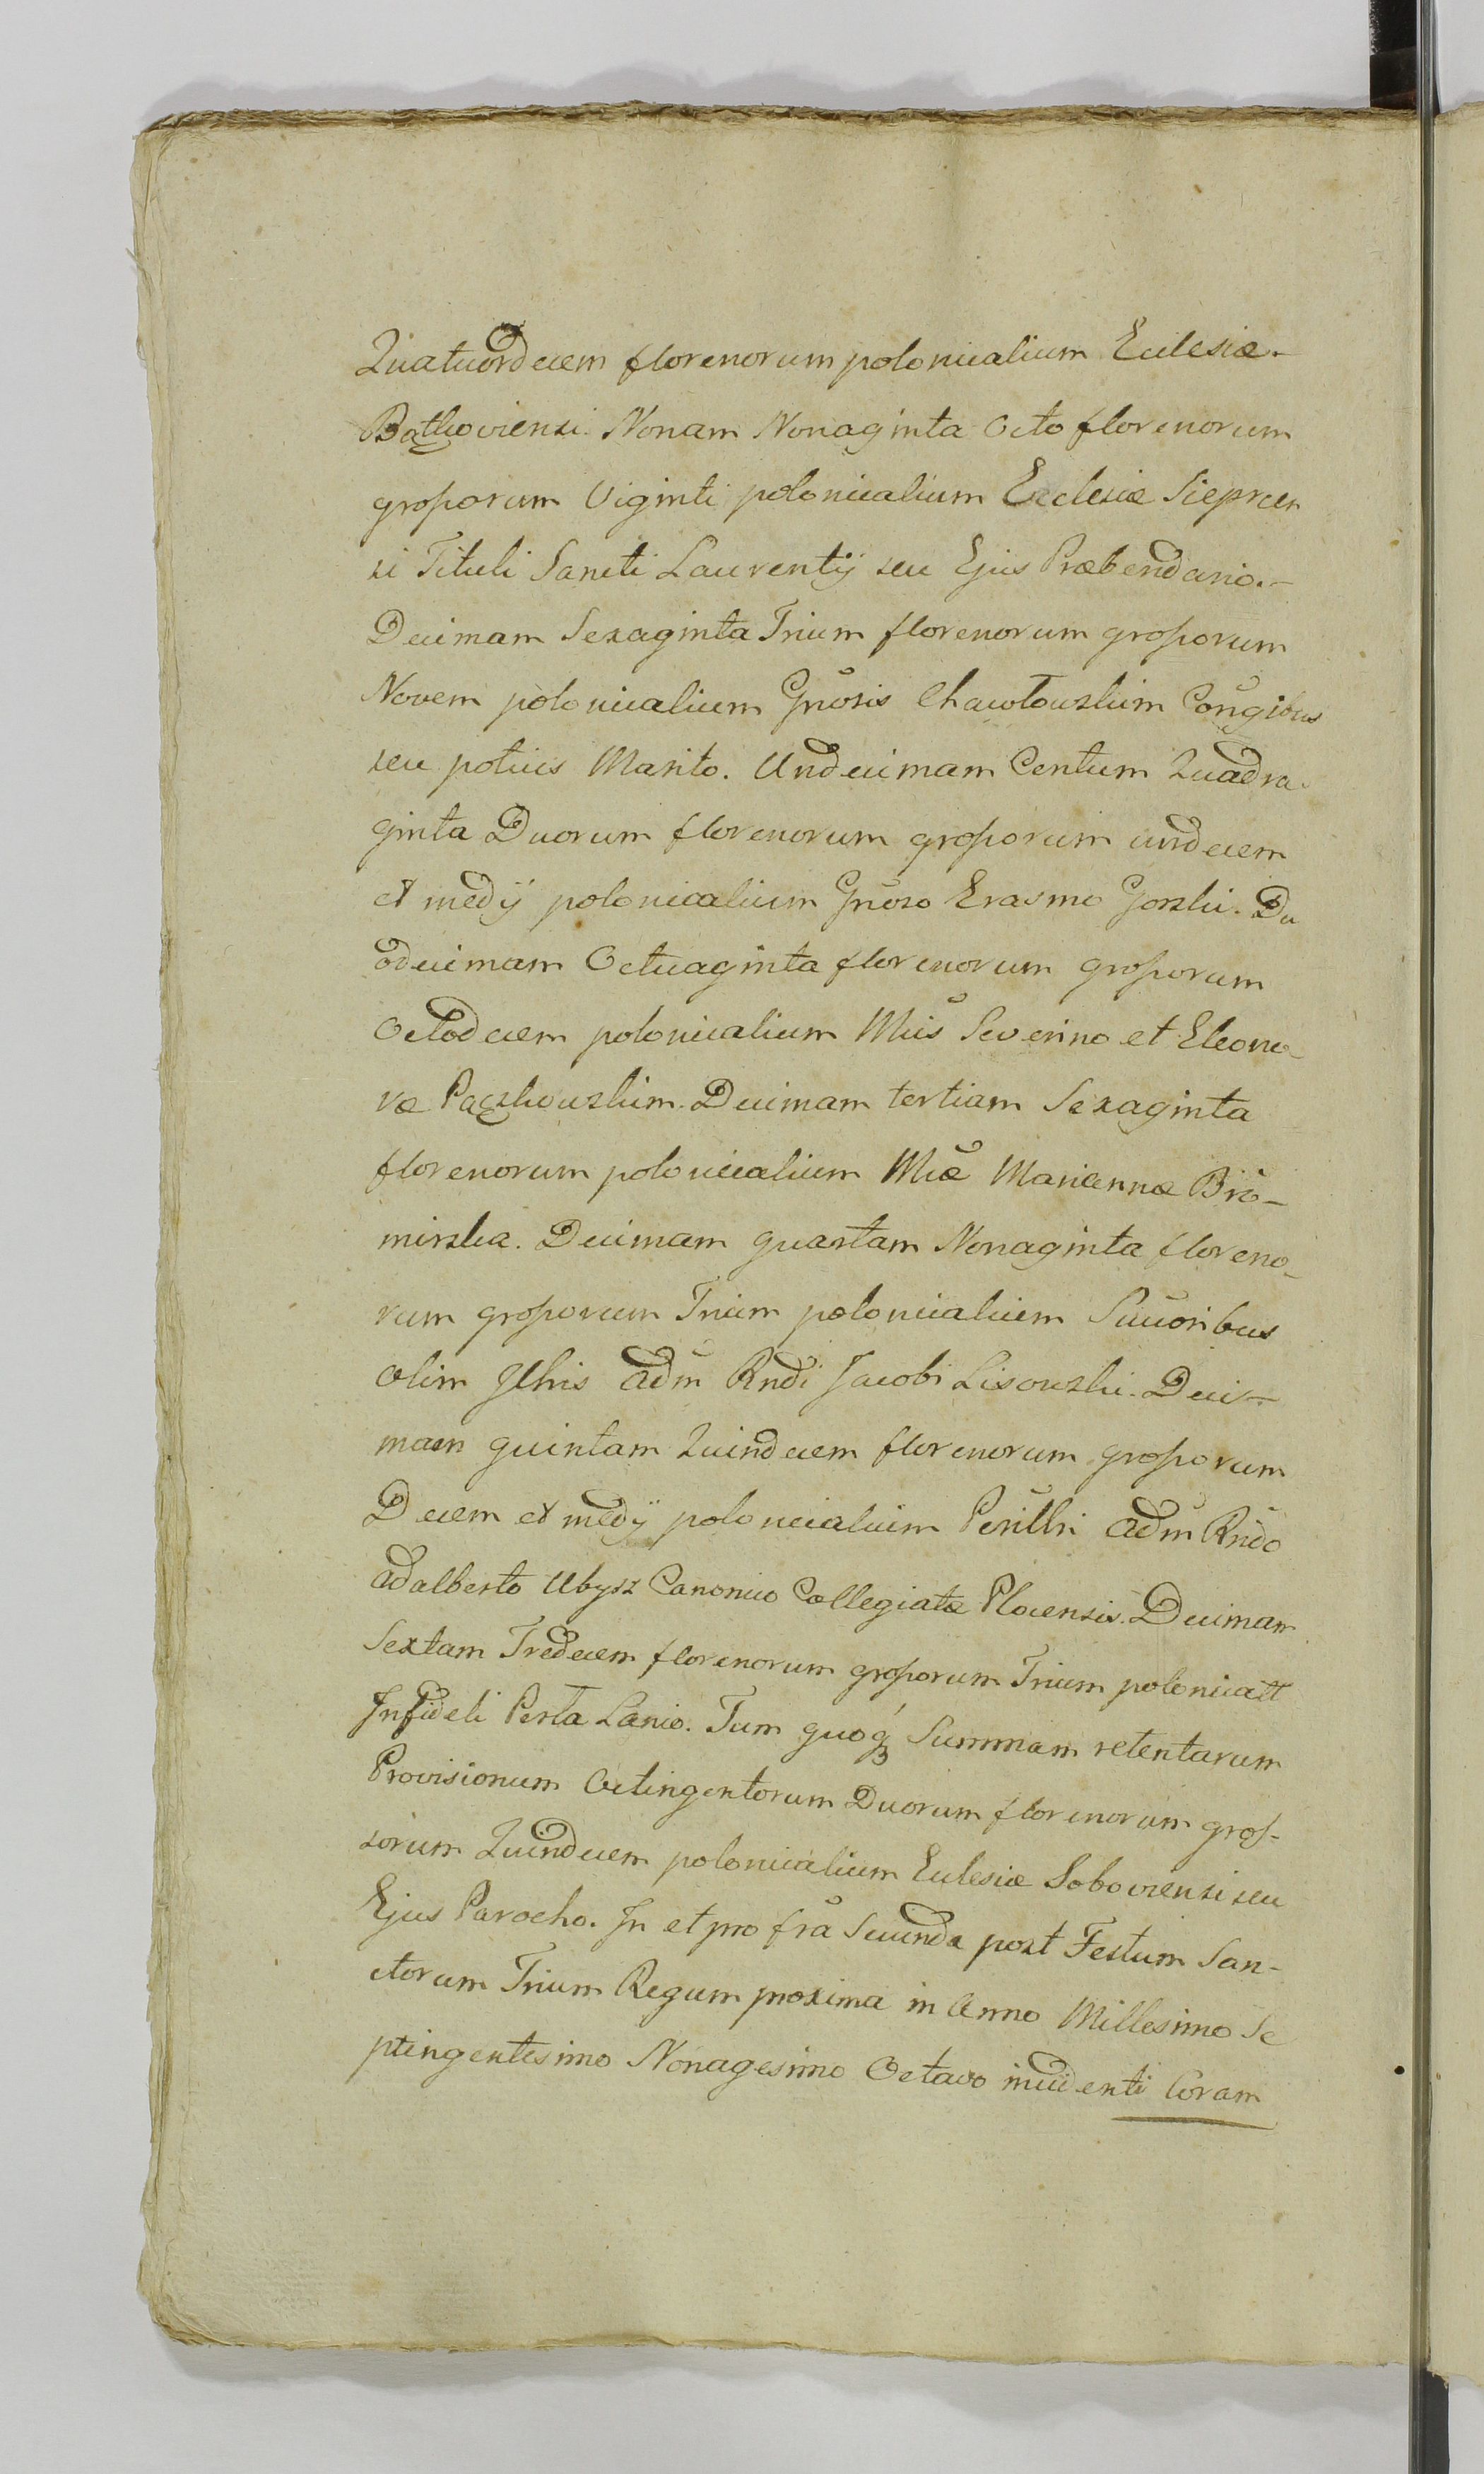 Quatuordecem florenorum polonicalium Ecclesiæ
Bątkoviensi. Nonam Nonaginta Octo florenorum
grossorum Viginti polonicalium Ecclesiæ Sieprcen
si Tituli Sancti Laurentij seu Ejus Præbendario.
Decimam Sexaginta Trium florenorum grossorum
Novem polonicalium Gnosis Chawłowskim Congibus
seu potius Marito. Undecimam Centum Quadra-
ginta Duorum florenorum grossorum undecem
et medij polonicalium Gnoso Erasmo Gorski. Du
odecimam Octuaginta florenorum grossorum
Octodecem polonicalium Mcis Severino et Eleono-
ræ Pączkowskim. Decimam tertiam Sexaginta
florenorum polonicalium Mcæ Mariannæ Bro-
mirska. Decimam quartam Nonaginta floreno-
rum grossorum Trium polonicalium Sucoribus
olim Illris adm Rndi Jacobi Lisowski. Deci-
mam quintam Quindecem florenorum grossorum
Decem et medij polonicalium Perilli adm Rndo
Adalberto Ubysz Canonico Collegiatæ Plocensis. Decimam
Sextam Tredecem florenorum grossorum Trium polonicall
Infideli Perla Lanio. Tum quoq Summam retentarum
Provisionum Octingentorum Duorum florenorum gros-
sorum Quindecem polonicalium Eclesiæ Soboviensi seu
Ejus Parocho. In et pro fra Secunda post Festum San-
ctorum Trium Regum proxima in Anno Millesimo Se
ptingentesimo Nonagesimo Octavo incidenti Coram